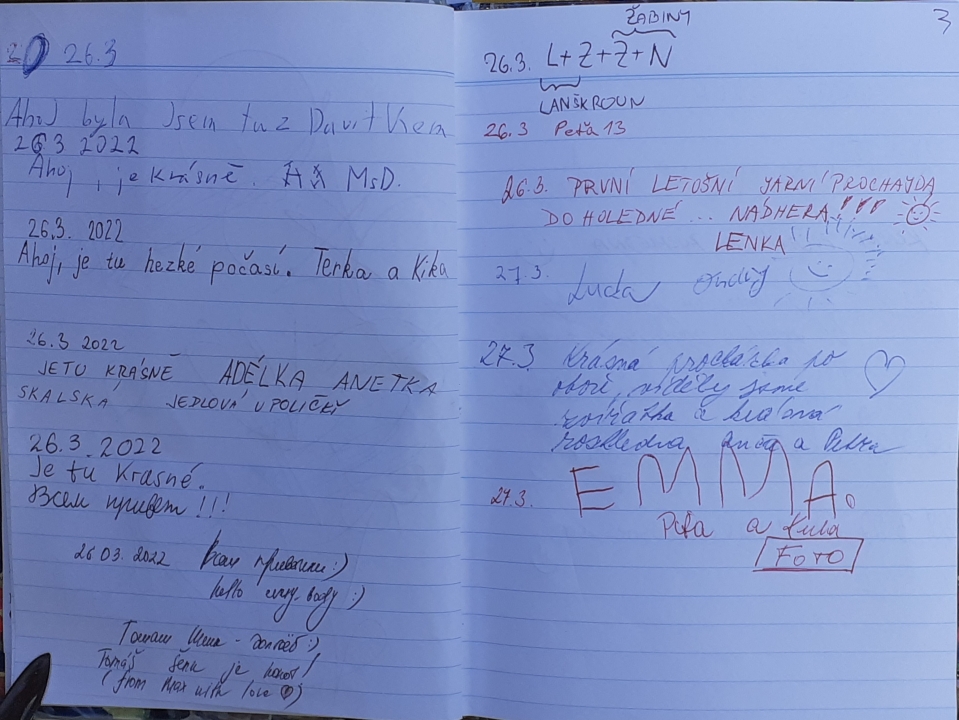 26.3
Ahoj byla Jsem tu z
26 3 2022
Ahoj, je krásně. MsD.
26.3. 2022
Ahoj, je tu hezké počasí. Terka a Kika
26.3 2022
JETU KRÁSNĚ ADÉLKA ANETKA
SKALSKÁ JEDLOVÁ U POLIČKY
26.3.2022
Je tu Krasné.
Всем привет !!!
26 03. 2022 :)
hello every-body :)
:)
Tomáš je !
(from Max with love)
3
ŽABINY
26.3. L+Z+Ž+N
LANŠKROUN
26.3 Peťa 13
26.3. PRVNÍ LETOŠNÍ JARNÍ PROCHAJDA
DO HOLEDNÉ ... NÁDHERA!!!
LENKA
27.3. Lucka Ondřej
27.3 Krásná procházka po
oboře, viděly jsme
zvířátka a krásná
rozhledna a Petra
27.3. EMMA.
Peťa a
FOTO